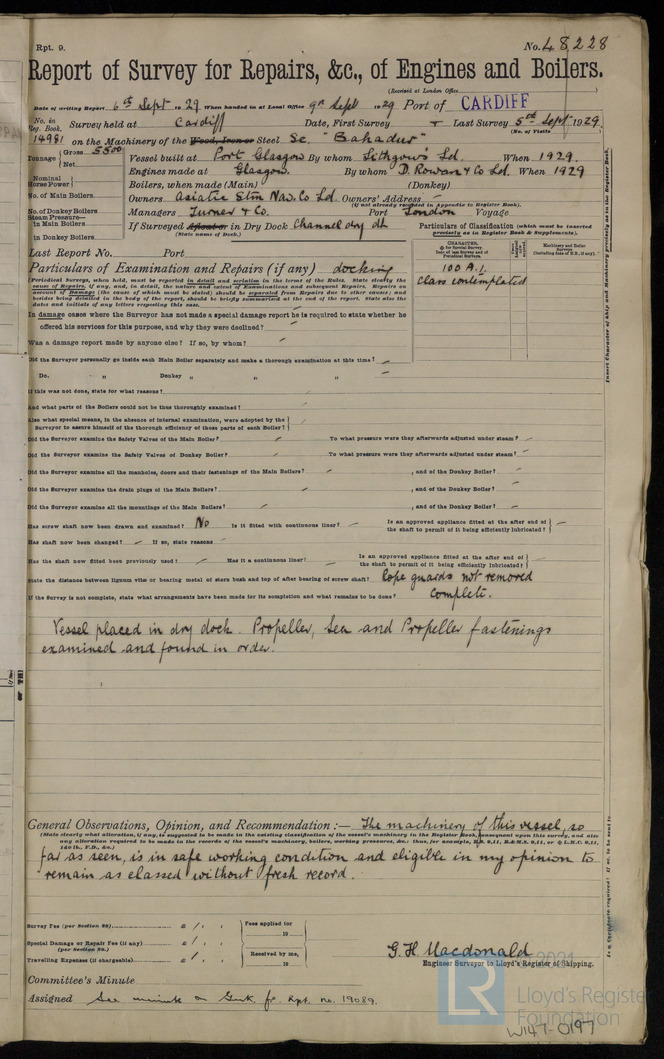 Rpt. 9.
No. 48228
Report of Survey for Repairs, &c., of Engines and Boilers.
(Received at London Office
Date of writing Report 6th Sept 1929 When handed in at Local Office 9th Sept 1929 Port of CARDIFF
No. in Reg. Book. Survey held at Cardiff Date, First Survey + Last Survey 5th Sept 1929
(No. of Visits)
14981 on the Machinery of the Wood, Iron or Steel Sc. "Bahadur"
Tonnage Gross 5500
Net
Vessel built at Port Glasgow By whom Lithgows Ld. When 1929.
Engines made at Glasgow. By whom D. Rowan & Co Ld. When 1929
Nominal Horse Power
Boilers, when made (Main) (Donkey)
No. of Main Boilers
Owners Asiatic Stm Nav. Co Ld. Owners' Address -
(if not already recorded in Appendix to Register Book).
No. of Donkey Boilers
Managers Turner & Co. Port London Voyage
Steam Pressure—
in Main Boilers
in Donkey Boilers
If Surveyed Afloat or in Dry Dock Channel dry dk
(State name of Dock.)
Particulars of Classification (which must be inserted
precisely as in Register Book & Supplements).
Last Report No. Port
CHARACTER.
Machinery and Boiler Surveys
100 A.1.
Class contemplated
Particulars of Examination and Repairs (if any) docking
(Periodical Surveys, when held, must be reported in detail and seriatim in the terms of the Rules. State clearly the
cause of Repairs, if any, and, in detail, the nature and extent of Examinations and subsequent Repairs. Repairs on
account of Damage (the cause of which must be stated) should be separated from Repairs due to other causes; and
besides being detailed in the body of the report, should be briefly summarised at the end of the report. State also the
dates and initials of any letters respecting this case.
In damage cases where the Surveyor has not made a special damage report he is required to state whether he
offered his services for this purpose, and why they were declined?
Was a damage report made by anyone else? If so, by whom?
Did the Surveyor personally go inside each Main Boiler separately and make a thorough examination at this time?
Do. " Donkey " " "
If this was not done, state for what reasons?
And what parts of the Boilers could not be thus thoroughly examined?
Also what special means, in the absence of internal examination, were adopted by the
Surveyor to assure himself of the thorough efficiency of those parts of each Boiler?
Did the Surveyor examine the Safety Valves of the Main Boiler? To what pressure were they afterwards adjusted under steam?
Did the Surveyor examine the Safety Valves of Donkey Boiler? To what pressure were they afterwards adjusted under steam?
Did the Surveyor examine all the manholes, doors and their fastenings of the Main Boilers? , and of the Donkey Boiler?
Did the Surveyor examine the drain plugs of the Main Boilers? , and of the Donkey Boiler?
Did the Surveyor examine all the mountings of the Main Boilers? , and of the Donkey Boiler?
Has screw shaft now been drawn and examined? No Is it fitted with continuous liner? Is an approved appliance fitted at the after end of
the shaft to permit of it being efficiently lubricated?
Has shaft now been changed? If so, state reasons
Has the shaft now fitted been previously used? Has it a continuous liner? Is an approved appliance fitted at the after end of
the shaft to permit of it being efficiently lubricated?
State the distance between lignum vitæ or bearing metal of stern bush and top of after bearing of screw shaft? Rope guards not removed
If the Survey is not complete, state what arrangements have been made for its completion and what remains to be done? Complete.
Vessel placed in dry dock. Propeller, Sea and Propeller fastenings
examined and found in order.
General Observations, Opinion, and Recommendation :— The machinery of this vessel, so
(State clearly what alteration, if any, is suggested to be made in the existing classification of the vessel's machinery in the Register Book, consequent upon this survey, and also
any alteration required to be made in the records of the vessel's machinery, boilers, working pressures, &c.: thus, for example,
far as seen, is in safe working condition and eligible in my opinion to
remain as classed without fresh record.
Survey Fee (per Section 29) £
Fees applied for
19
Special Damage or Repair Fee (if any) £
(per Section 29.)
Travelling Expenses (if chargeable) £
Received by me,
19
G. H. Macdonald
Engineer Surveyor to Lloyd's Register of Shipping.
Committee's Minute
Assigned See minute on Grk. fe. Rpt. no. 19089.
Insert Character of Ship and Machinery precisely as in the Register Book.
LR
Lloyd's Register
Foundation
W147-0197